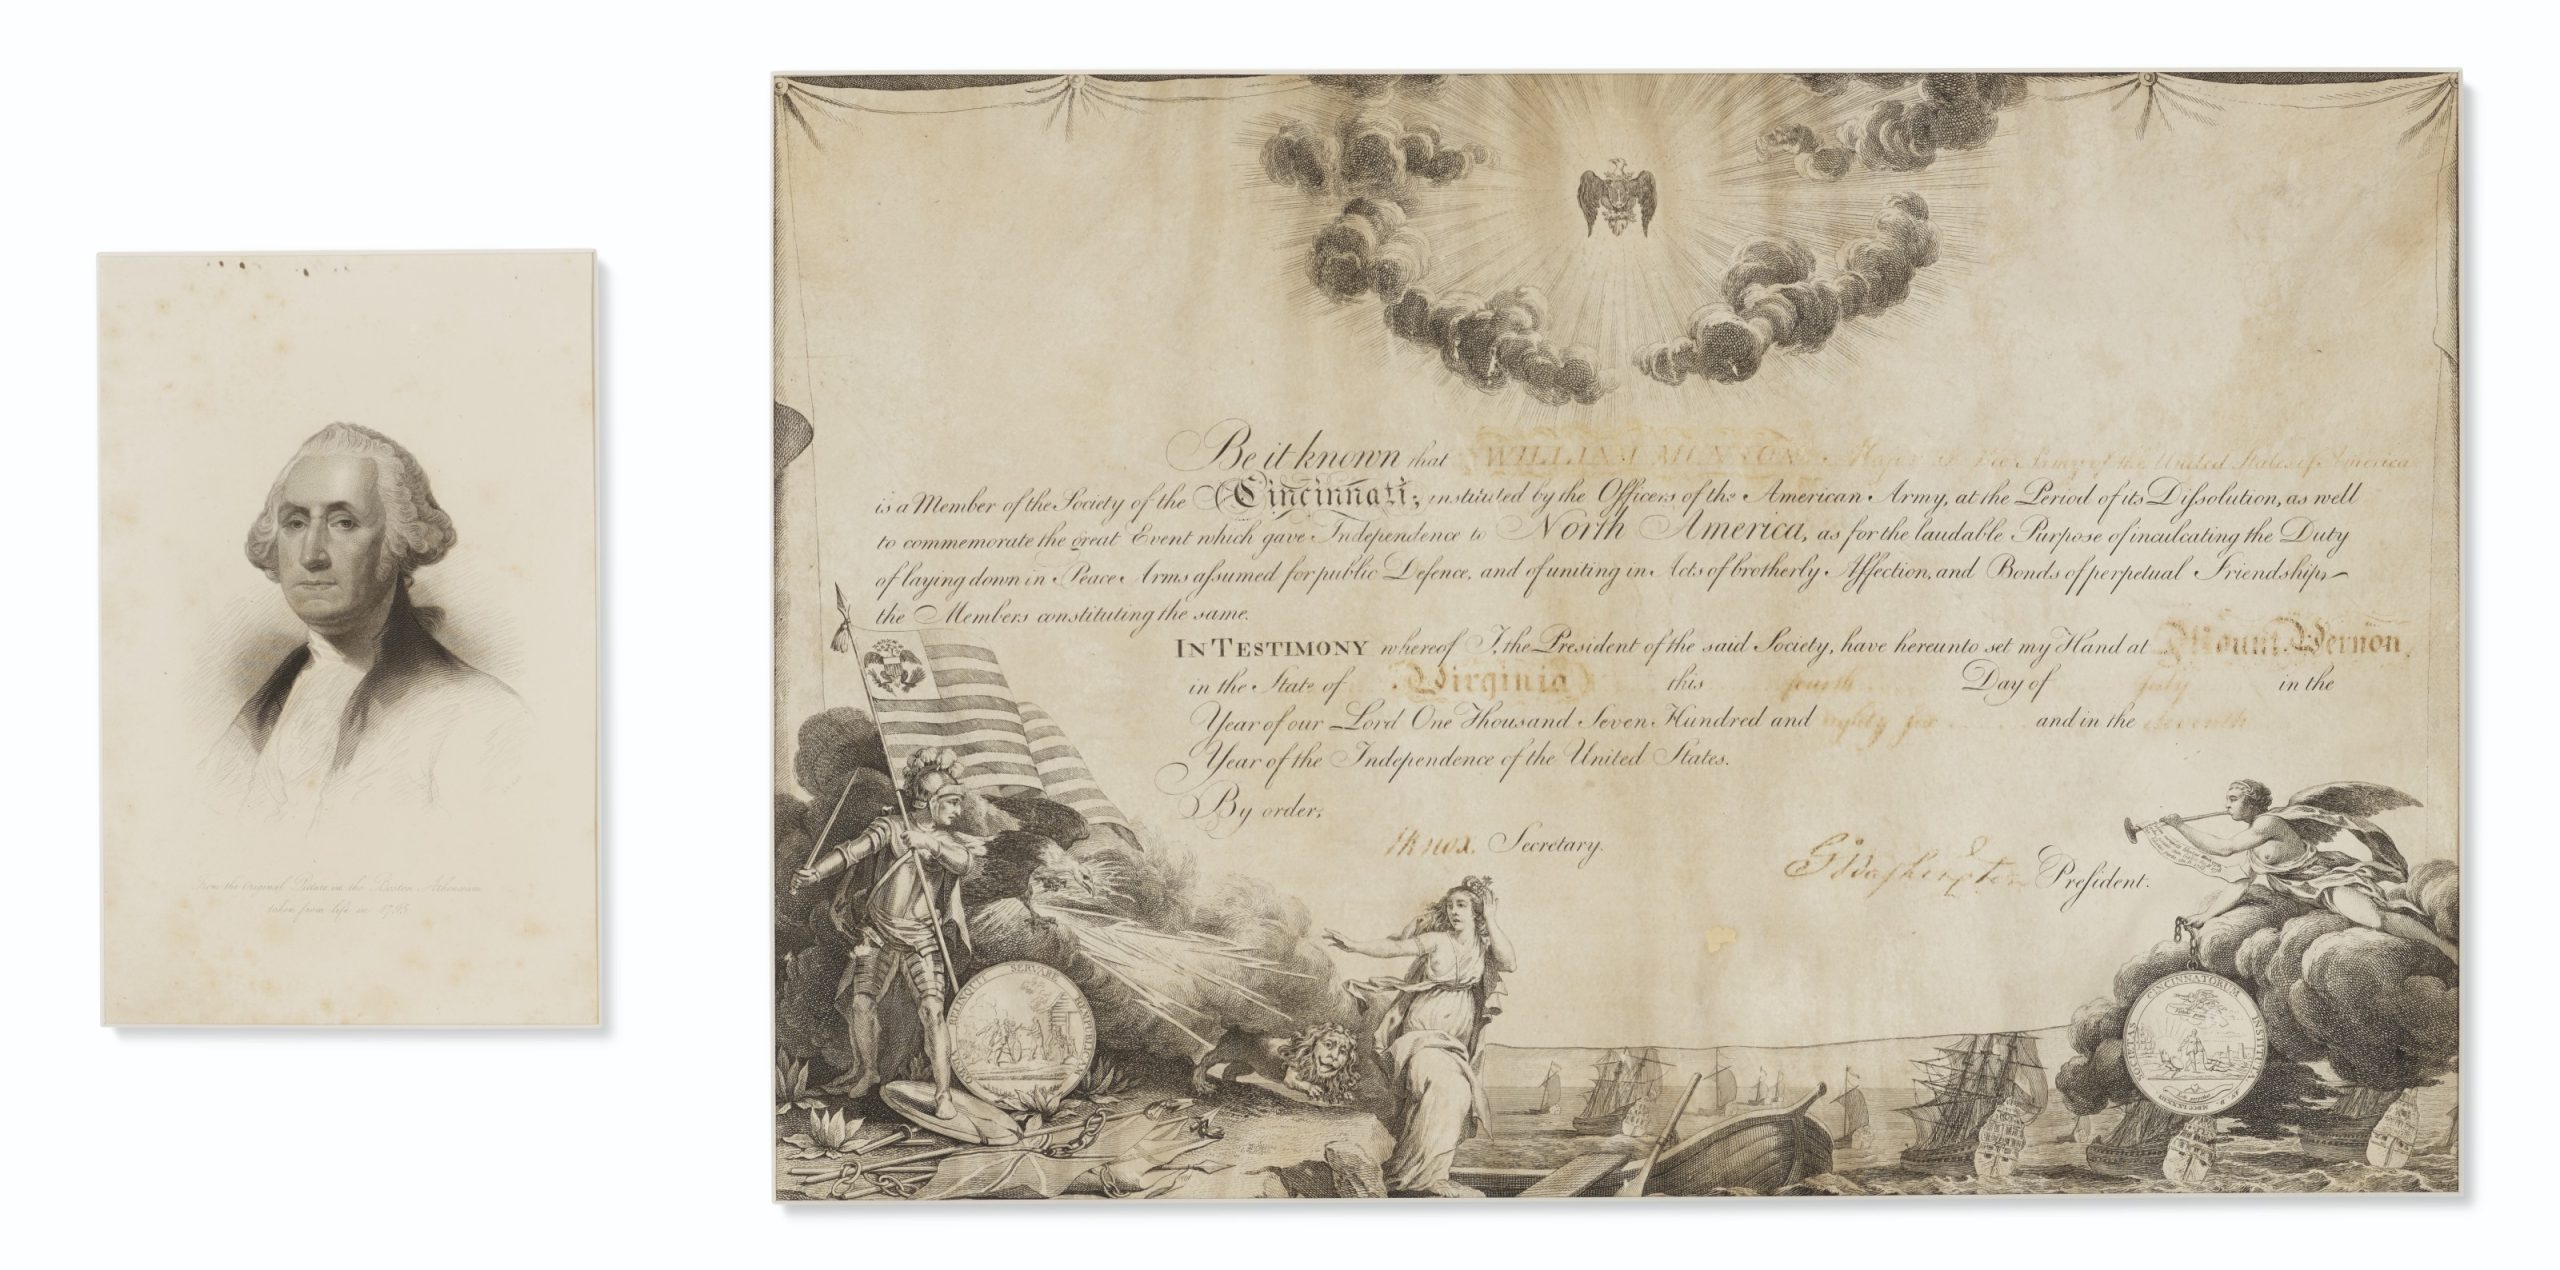 From the Original Picture in the Boston Athenaeum
taken from life in 1795
Be it known that WILLIAM Major in the Army of the United States of America
is a Member of the Society of the Cincinnati; instituted by the Officers of the American Army, at the Period of its Dissolution, as well
to commemorate the great Event which gave Independence to North America, as for the laudable Purpose of inculcating the Duty
of laying down in Peace Arms assumed for public Defence, and of uniting in Acts of brotherly Affection, and Bonds of perpetual Friendship
the Members constituting the same.
IN TESTIMONY whereof I, the President of the said Society, have hereunto set my Hand at Mount Vernon
in the State of Virginia this fourth Day of July in the
Year of our Lord One Thousand Seven Hundred and eighty six and in the eleventh
Year of the Independence of the United States.
By order,
HKnox. Secretary.
GWashington President.
OMNIA RELINQUIT SERVARE REMPUBLICAM
SOCIETAS CINCINNATORUM INSTITUTA AD